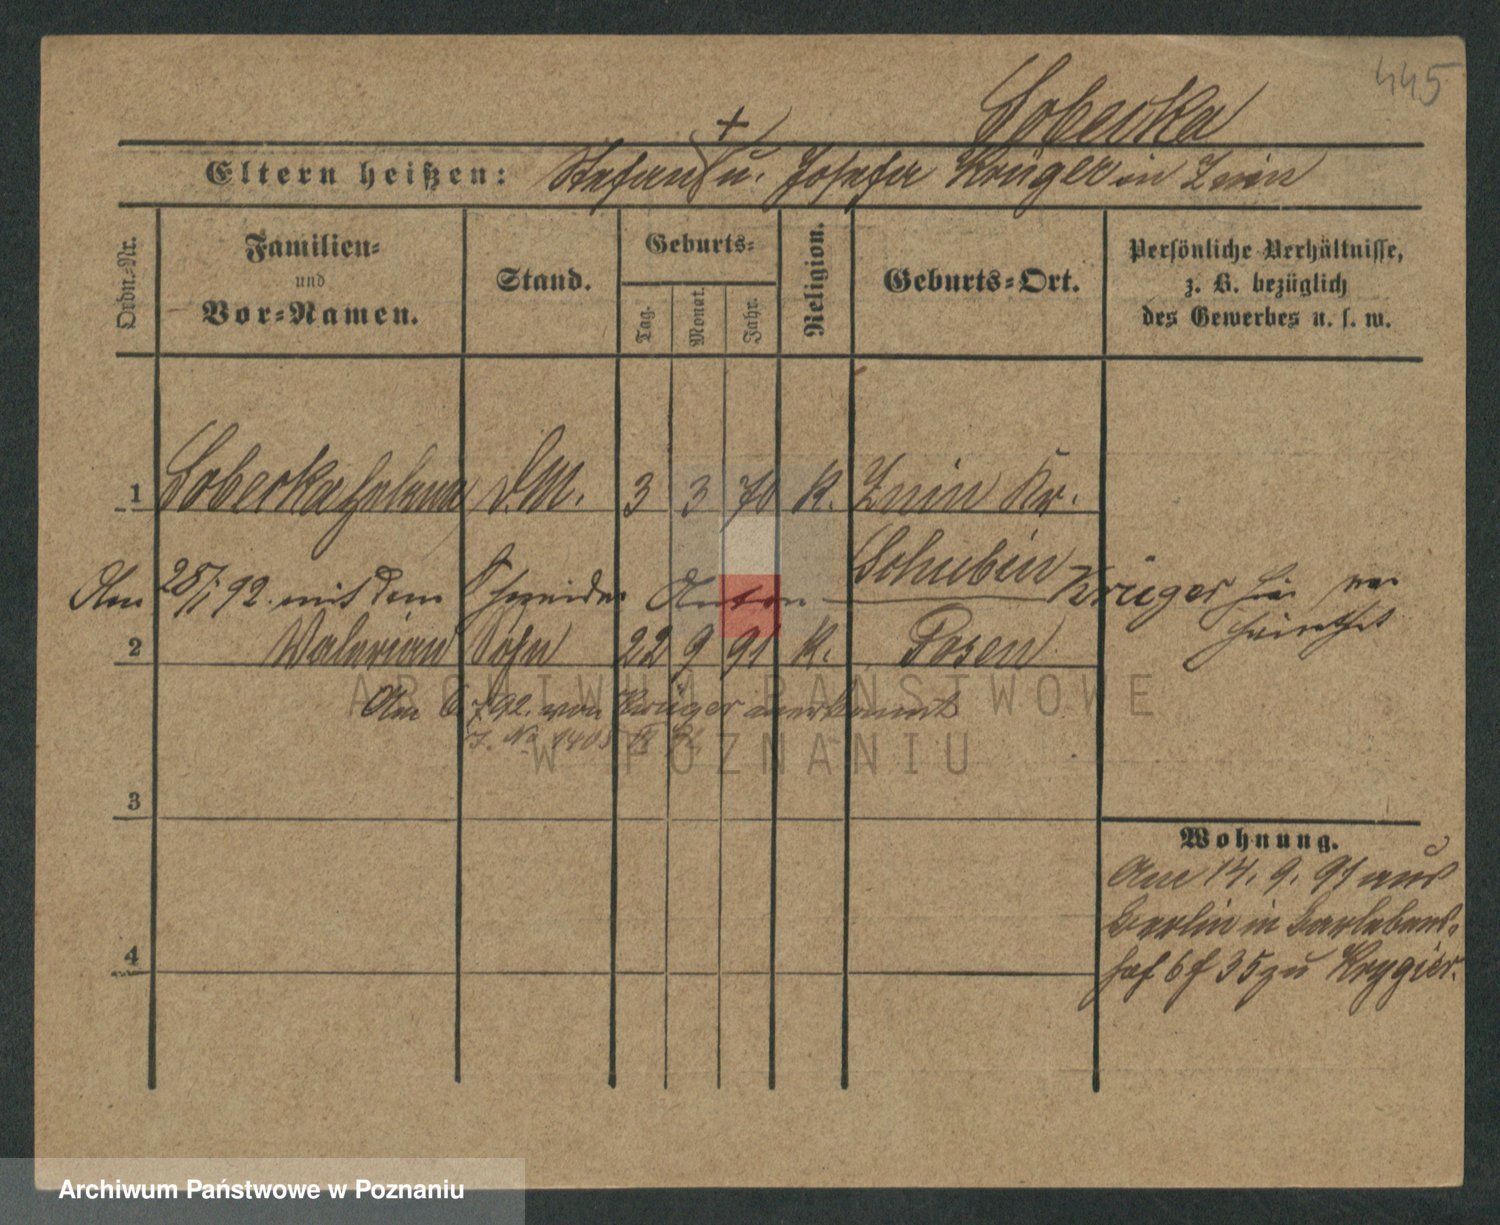 445
Sobecka
+
Eltern heißen: Stefan u. Josefa Krüger in Znin
Ordn.-Nr.
Familien-
und
Vor-Namen.
Stand.
Geburts-
Tag.
Monat.
Jahr.
Religion.
Geburts-Ort.
Persönliche Verhältnisse,
z. B. bezüglich
des Gewerbes u. s. w.
1 Sobecka Helena D.M. 3 3 70 K. Znin Kr.
Schubin
Am 28/1 92. mit dem Schneider Anton Krüger hier ver
heirathet
2 Valerian Sohn 22 9 91 K. Posen
Am 6. 7 92. von Krüger anerkannt
J. No 1405
3
4
Wohnung.
Am 14. 9. 91 aus
Berlin in Barlebens-
hof 6 f 35 zu Krygier.
ARCHIWUM PAŃSTWOWE
W POZNANIU
Archiwum Państwowe w Poznaniu